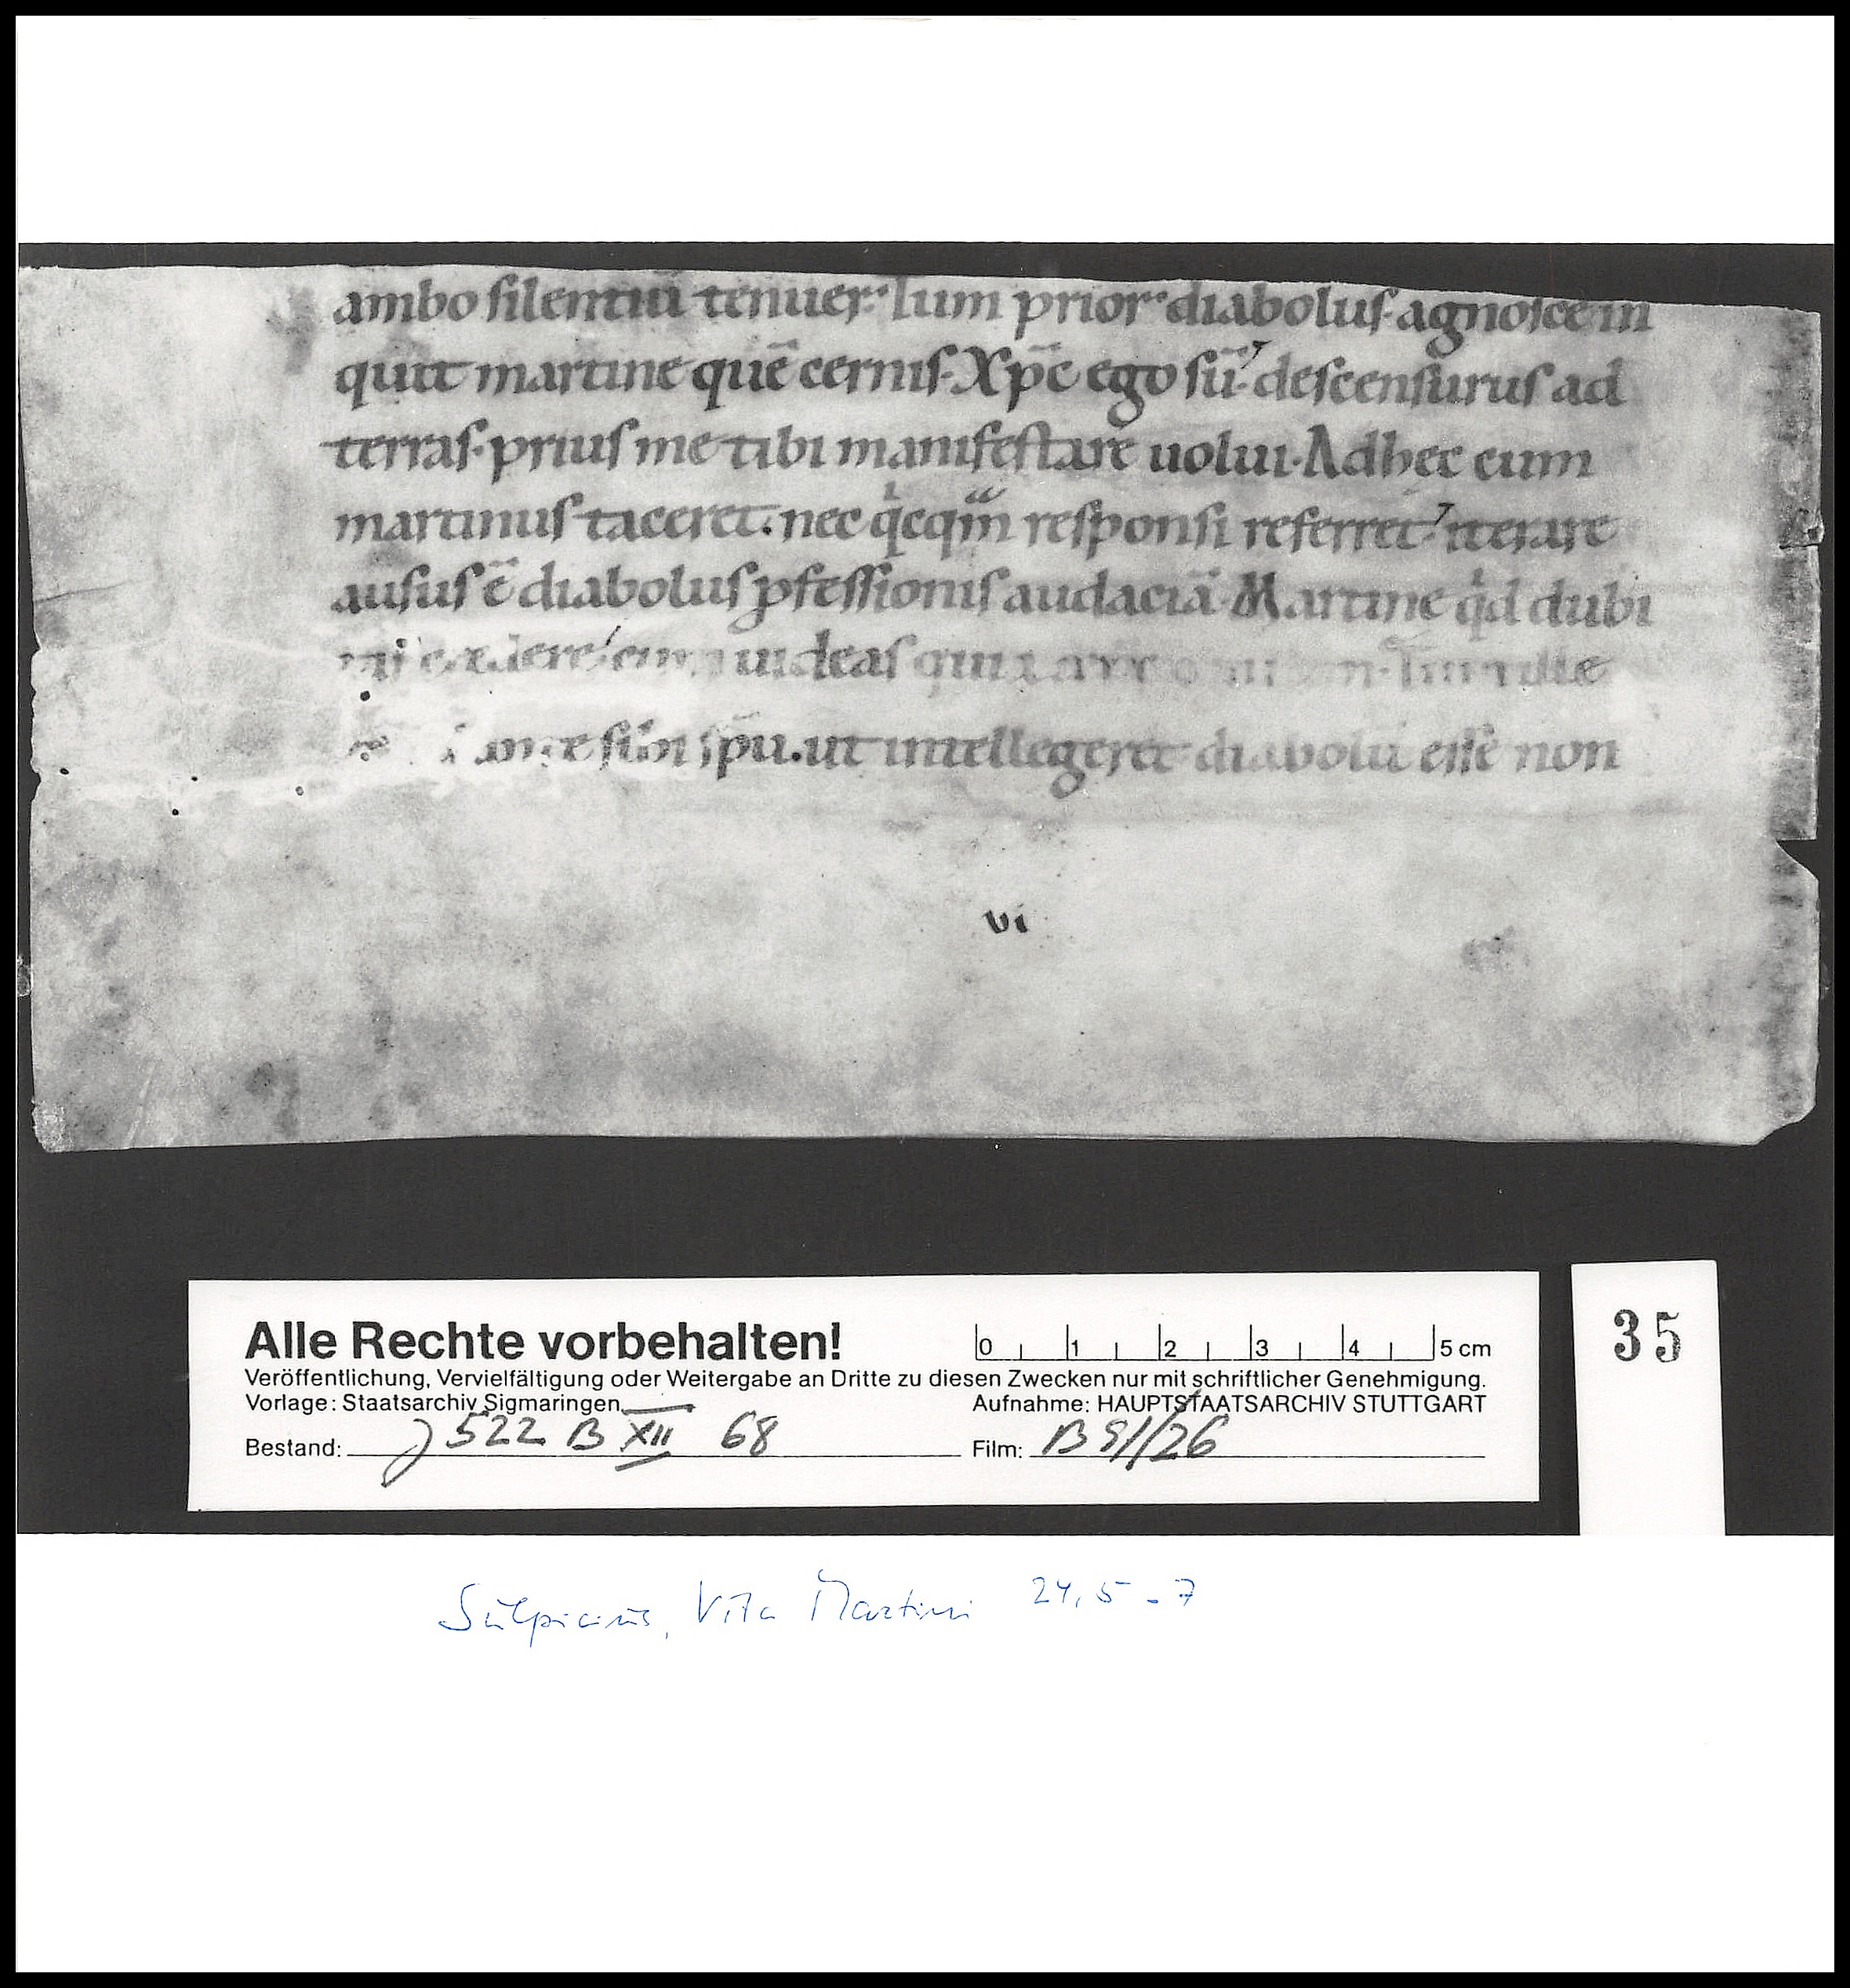 ambo silentiū tenuer̄. Tum prior diabolus. agnosce in
quit martine quē cernis. Xp̄c ego sū. descensurus ad
terras. prius me tibi manifestare uolui. Ad hec cum
martinus taceret. nec qͥcqͣm responsi referret. iterare
ausus ē diabolus ꝓfessionis audaciā. Martine qͥd dubi
credere cum uideas
sibi sp̄u. ut intellegeret diabolū esse non
vi
Alle Rechte vorbehalten!
0 1 2 3 4 5 cm
Veröffentlichung, Vervielfältigung oder Weitergabe an Dritte zu diesen Zwecken nur mit schriftlicher Genehmigung.
Vorlage: Staatsarchiv Sigmaringen Aufnahme: HAUPTSTAATSARCHIV STUTTGART
Bestand: J 522 B XII 68 Film: B 91/26
35
Sulpicius, Vita Martini 24, 5-7